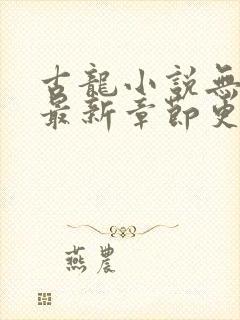 古龍小說無
最新章節更
燕農